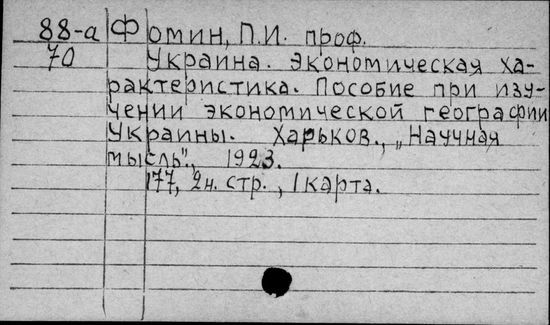 88-а Фомин, П.И. проф.
70 Украина. Экономическая ха-
рактеристика. Пособие при изу-
чении экономической географии
Украины. Харьков., „Научная
мысль"., 1923.
177, 2н. стр., 1 карта.